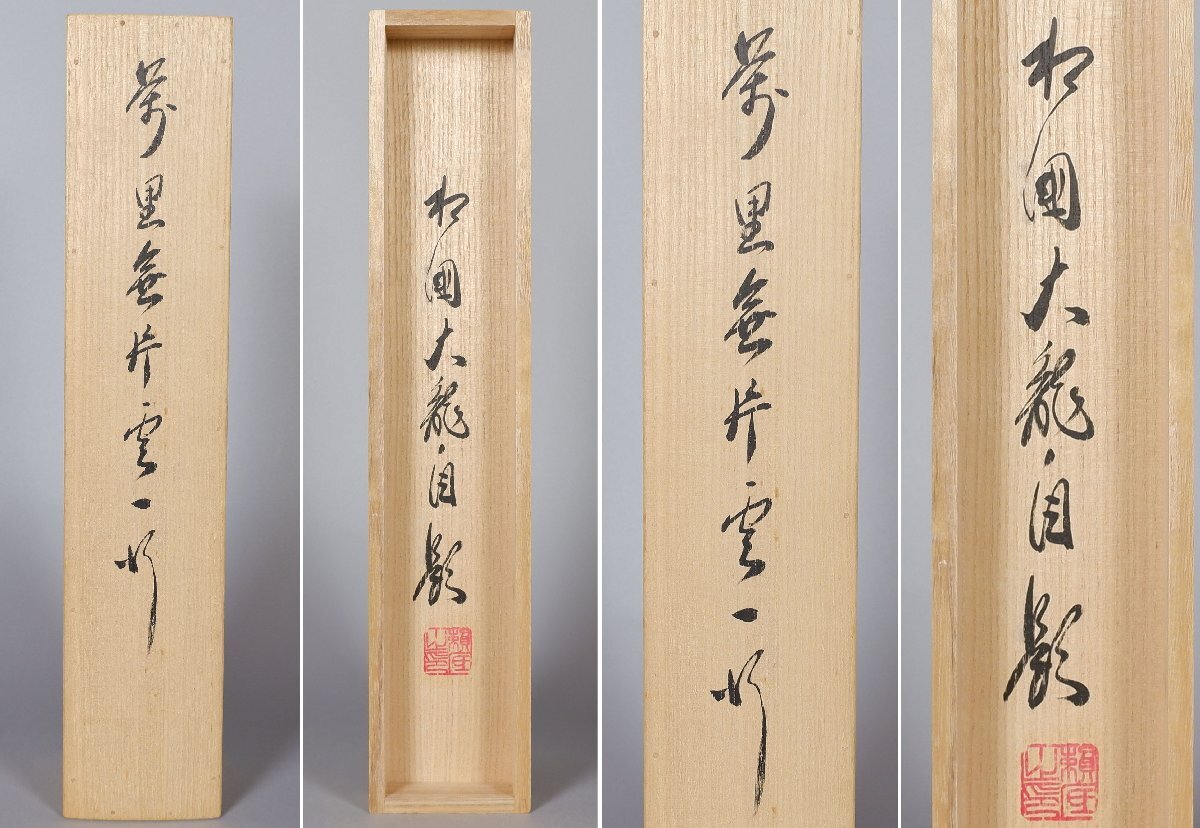 萬里無片雲一行
相國大龍自題
萬里無片雲一行
相國大龍自題